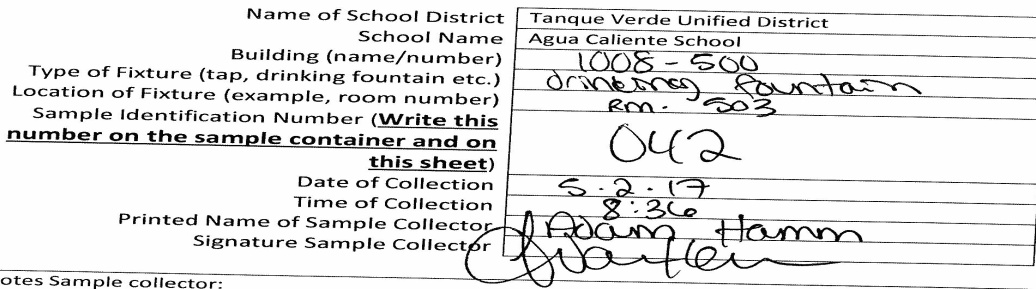 Name of School District Tanque Verde Unified District
School Name Agua Caliente School
Building (name/number) 1008-500
Type of Fixture (tap, drinking fountain etc.) drinking fountain
Location of Fixture (example, room number) Rm. 503
Sample Identification Number (Write this
number on the sample container and on
this sheet) 042
Date of Collection 5.2.17
Time of Collection 8:36
Printed Name of Sample Collector Adam Hamm
Signature Sample Collector
otes Sample collector: